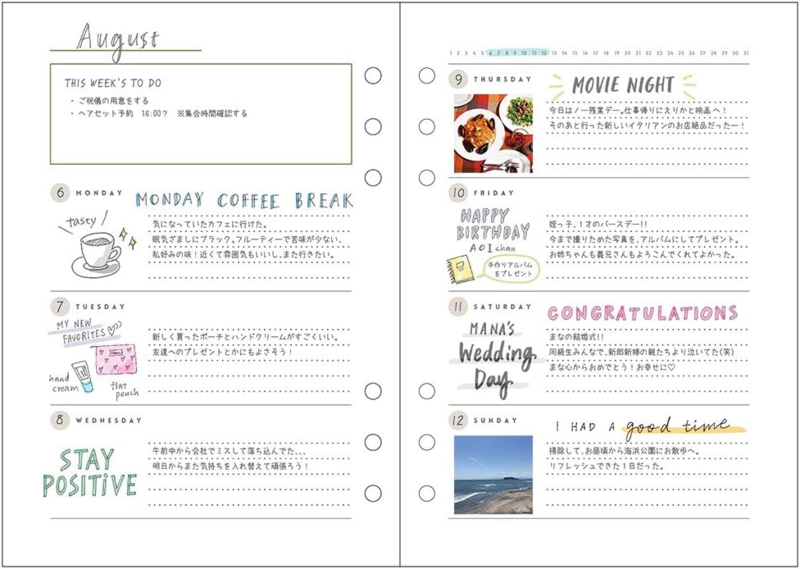 August
THIS WEEK'S TO DO
・ご祝儀の用意をする
・ヘアセット予約 16:00? ※集合時間確認する
6 MONDAY
MONDAY COFFEE BREAK
tasty
気になっていたカフェに行けた。
眠気ざましにブラック。フルーティーで苦味が少ない、
私好みの味!近くて雰囲気もいいし、また行きたい。
7 TUESDAY
MY NEW
FAVORITES
hand
cream
flat
pouch
新しく買ったポーチとハンドクリームがすごくいい。
友達へのプレゼントとかにもよさそう!
8 WEDNESDAY
STAY
POSITIVE
午前中から会社でミスして落ち込んでた...
明日からまた気持ちを入れ替えて頑張ろう!
1 2 3 4 5 6 7 8 9 10 11 12 13 14 15 16 17 18 19 20 21 22 23 24 25 26 27 28 29 30 31
9 THURSDAY
MOVIE NIGHT
今日はノー残業デー。仕事帰りにえりかと映画へ!
そのあと行った新しいイタリアンのお店絶品だったー!
10 FRIDAY
HAPPY
BIRTHDAY
AOI chan
手作りアルバム
をプレゼント
姪っ子、1才のバースデー!!
今まで撮りためた写真を、アルバムにしてプレゼント。
お姉ちゃんも義兄さんもよろこんでくれてよかった。
11 SATURDAY
CONGRATULATIONS
MANA'S
Wedding
Day
まなの結婚式!!
同級生みんなで、新郎新婦の親たちより泣いてた(笑)
まな心からおめでとう!お幸せに♡
12 SUNDAY
I HAD A good time
掃除して、お昼頃から海浜公園にお散歩へ。
リフレッシュできた1日だった。